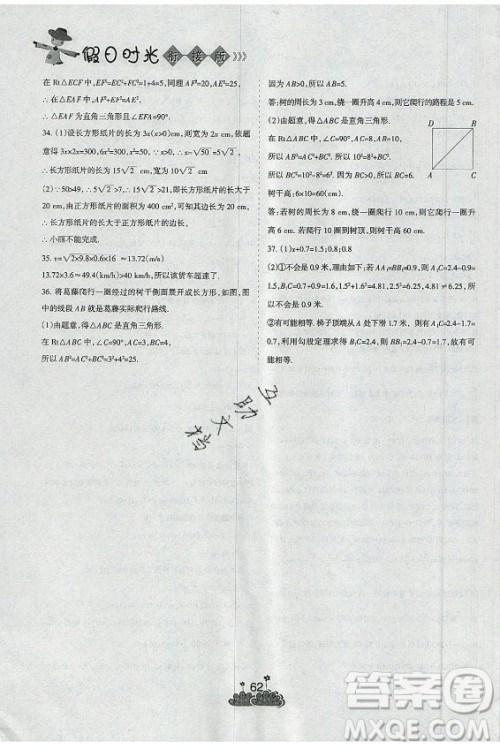 假日时光 衔接版 》》》
在 Rt△ECF 中,EF²=EC²+FC²=1+4=5,同理 AF²=20,AE²=25,
∴在△EAF 中,EF²+AF²=AE²,
∴△EAF 为直角三角形,∠EFA=90°.
34. (1)设长方形纸片的长为 3x(x>0) cm,则宽为 2x cm,依题
意得 3x×2x=300, x²=50,∵x>0,∴x=√50=5√2,
∴长方形纸片的长为 15√2 cm.
(2)∵50>49,∴5√2>7,∴15√2>21,即长方形纸片的长大于
20 cm,由正方形纸片的面积为 400 cm²,可知其边长为
20 cm,∴长方形纸片的长大于正方形纸片的边长,
∴小丽不能完成.
35. v=16×√2×9.8×0.6×16≈13.72(m/s)
13.72×3.6≈49.4(km/h)所以该货车超速了.
36. 将葛藤爬行一圈经过的树干侧面展开成长方形,如图,图
中的线段 AB 就是葛藤实际爬行路线.
(1)由题意,得△ABC 是直角三角形.
在 Rt△ABC 中,∠C=90°,BC=3,AC=4.
所以 AB²=AC²+BC²=4²+3²=25.
因为 AB>0,所以 AB=5.
答:树的周长为 3 cm,绕一圈升高 4 cm,则它爬行的路程是 5 cm.
(2)由题意,得△ABC 是直角三角形.
在 Rt△ABC 中,∠C=90°,AC=8,AB=10.
所以 BC²=10²-8²=36.因为 BC>0,所以 BC=6.
树干高:6×10=60(cm).
答:若树的周长为 8 cm,绕一圈爬行 10 cm,则爬行 10 圈到达树顶,树干高 60 cm.
D
B
A
C
37. (1)x+0.7=1.5;0.8;0.8
(2)①不会是 0.9 米,理由如下:若 AA₁=BB₁=0.9,则 A₁C=2.4-0.9=
1.5,B₁C=0.7+0.9=1.6,1.5²+1.6²=4.81,2.5²=6.25,∵A₁C²+B₁C²≠A₁B₁²,所以不会是
0.9 米.
②有可能相等. 梯子顶端从 A 处下滑 1.7 米时,A₁C=2.4-1.7=
0.7, 利用勾股定理求得 B₁C=2.4,BB₁=2.4-0.7=1.7,所以有
可能相等.
互助文档
62
答案卷
MXQE.COM